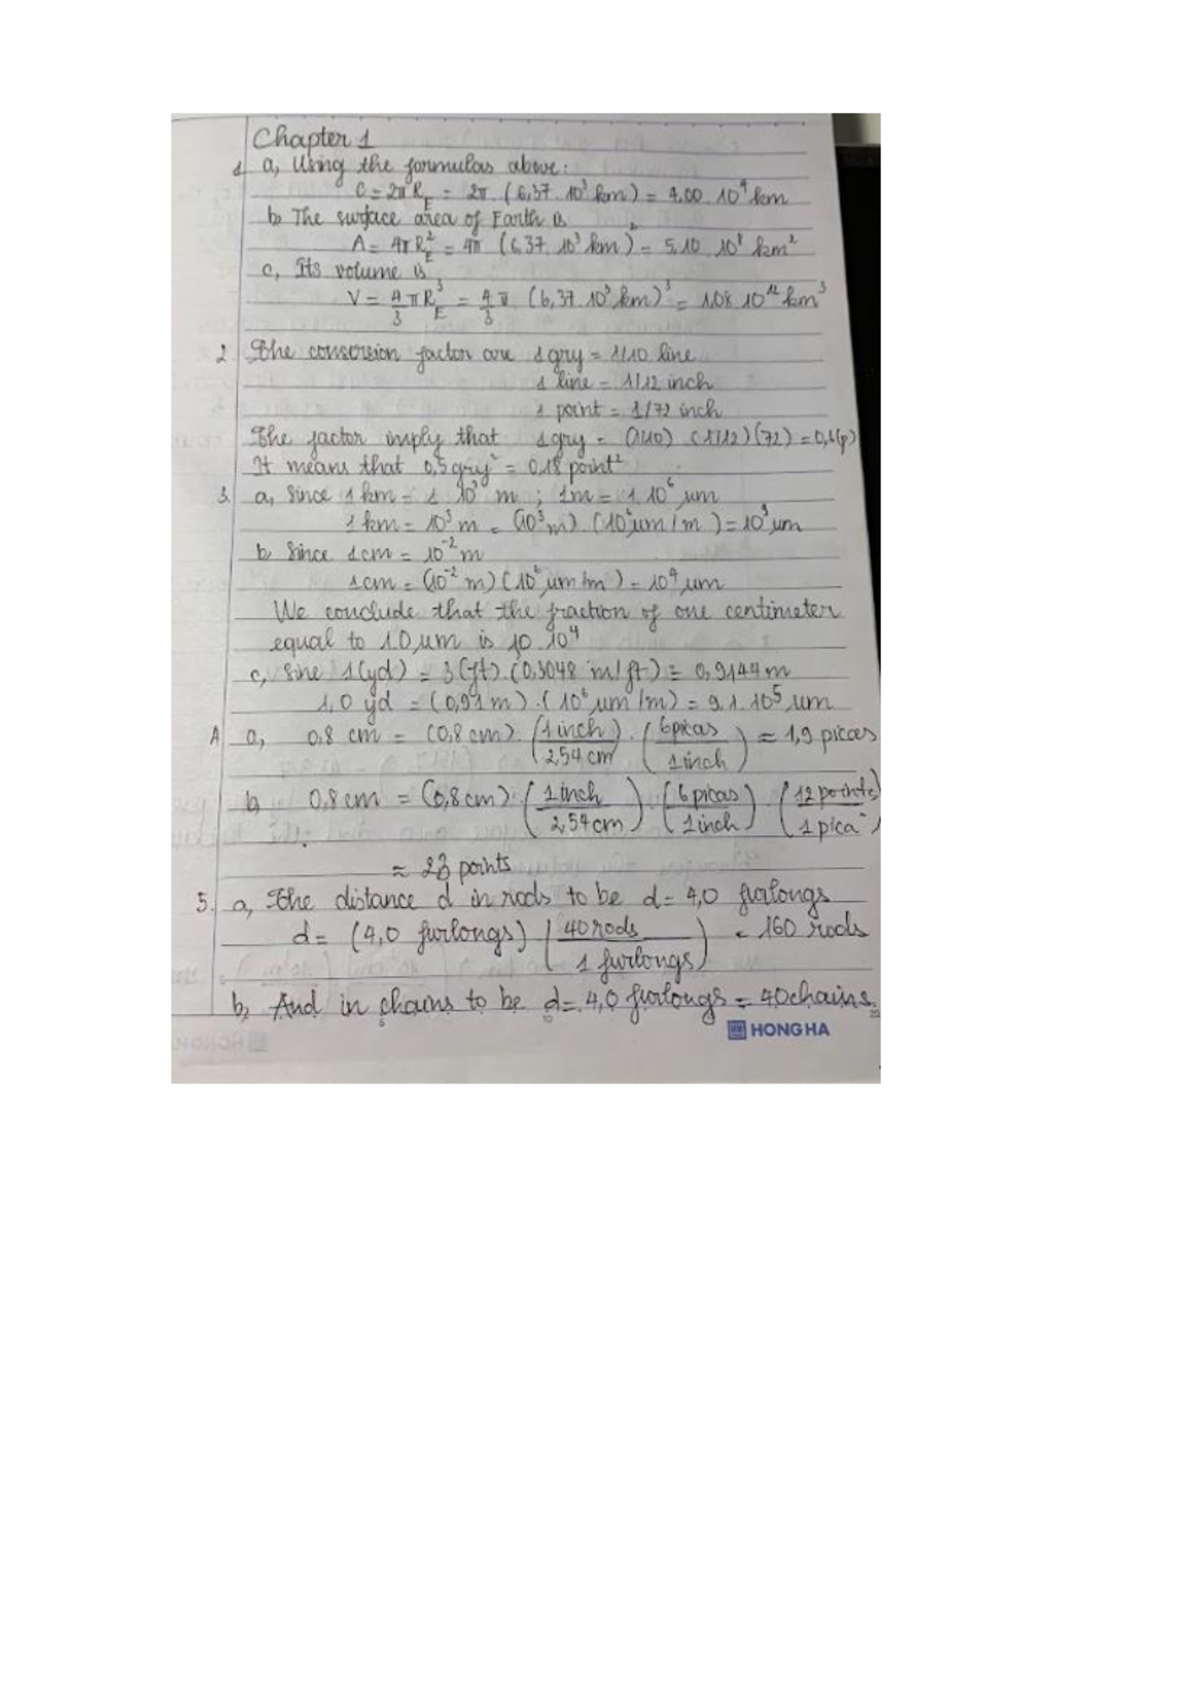 Chapter 1
1. a, Using the formulas above:
C = 2πR_E = 2π . (6,37 . 10³ km) = 4,00 . 10⁴ km
b, The surface area of Earth is
A = 4πR_E² = 4π (6,37 . 10³ km)² = 5,10 . 10⁸ km²
c, Its volume is
V = 4/3 πR_E³ = 4/3 π (6,37 . 10³ km)³ = 1,08 . 10¹² km³
2 The conversion factor are 1 gry = 1/10 line
1 line = 1/12 inch
1 point = 1/72 inch
The factor imply that 1 gry = (1/10) (1/12) (72) = 0,6(p)
It means that 0,5 gry² = 0,18 point²
3. a, Since 1 km = 1 10³ m ; 1m = 1.10⁶ μm
1 km = 10³ m = (10³ m) . (10⁶ μm/m) = 10⁹ μm
b, Since 1cm = 10⁻² m
1cm = (10⁻² m) (10⁶ μm/m) = 10⁴ μm
We conclude that the fraction of one centimeter
equal to 1.0 μm is 10.10⁴
c, Sine 1(yd) = 3(ft) . (0,3048 m/ft) = 0,9144 m
1,0 yd = (0,91 m) . (10⁶ μm/m) = 9.1.10⁵ μm
4 a, 0,8 cm = (0,8 cm) . (1 inch / 2,54 cm) . (6 picas / 1 inch) ≈ 1,9 picas
b, 0,8 cm = (0,8 cm) . (1 inch / 2,54 cm) . (6 picas / 1 inch) . (12 points / 1 pica)
≈ 23 points
5. a, The distance d in rods to be d = 4,0 furlongs
d = (4,0 furlongs) (40 rods / 1 furlongs) = 160 rods
b, And in chains to be d = 4,0 furlongs = 40 chains.
HONG HA